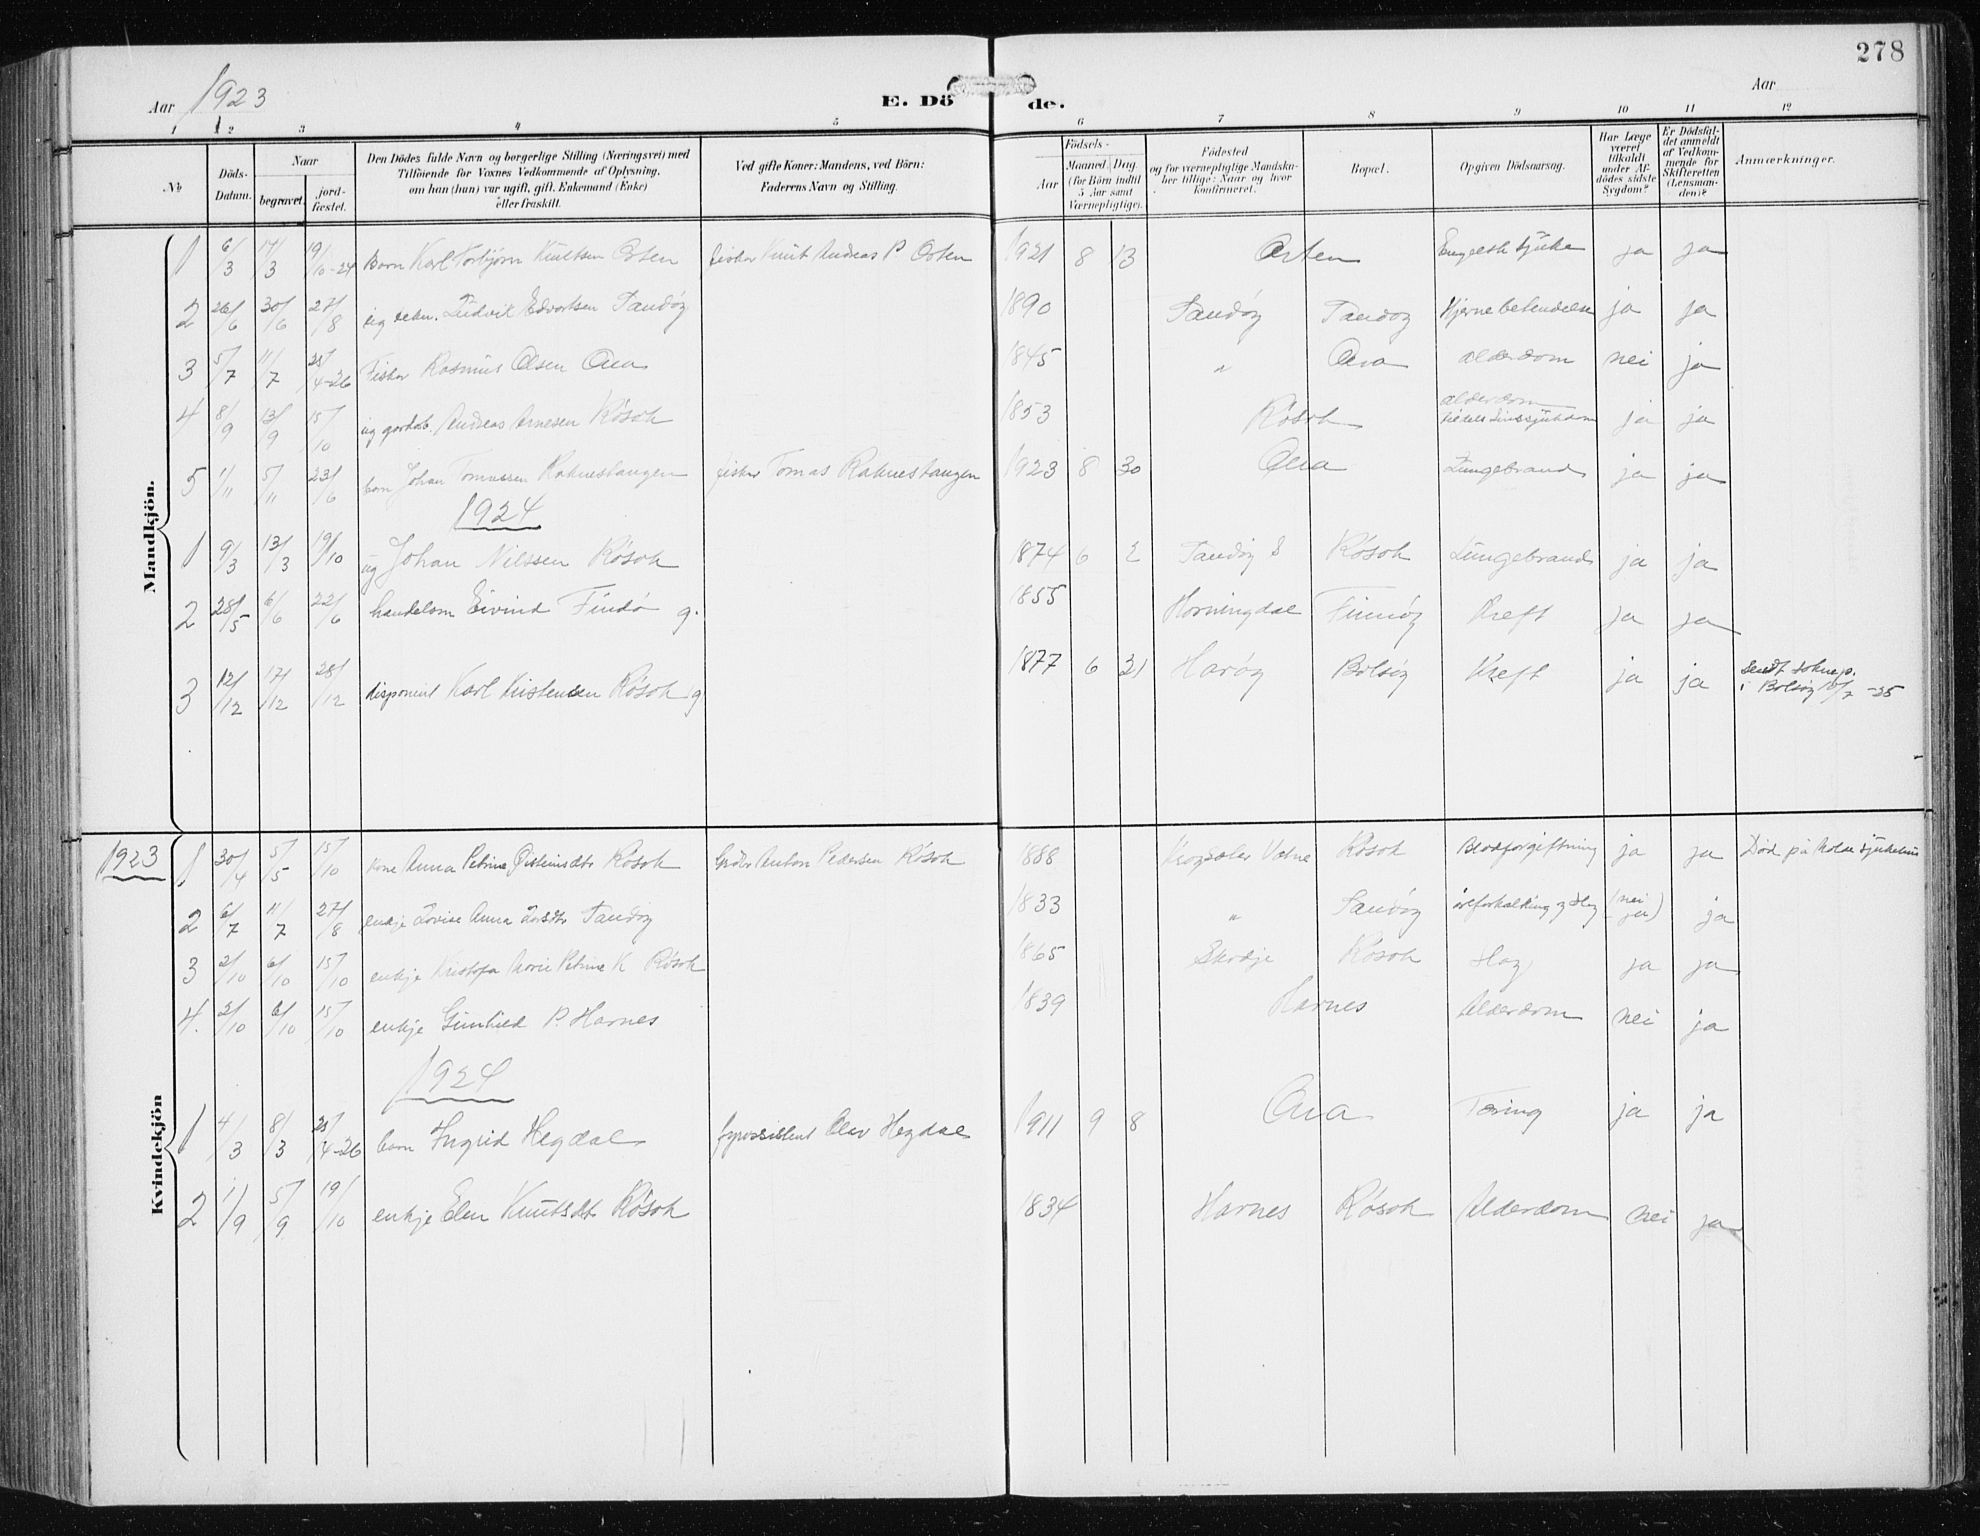 278
Aar 1923
E. Dö de.
Aar
1 2 3 4 5 6 7 8 9 10 11 12
№
Döds-Datum.
Naar
begravet.
jord-fæstet.
Den Dödes fulde Navn og borgerlige Stilling (Næringsvei) med
Tilföiende for Voxnes Vedkommende af Oplysning,
om han (hun) var ugift, gift, Enkemand (Enke)
eller fraskilt.
Ved gifte Koner: Mandens, ved Börn:
Faderens Navn og Stilling.
Födsels-
Aar
Maaned Dag
(for Börn indtil
5 Aar samt
Værnepligtige).
Födested
og for værnepligtige Mandska-
ber tillige: Naar og hvor
konfirmeret.
Bopæl.
Opgiven Dödsaarsag.
Har Læge
været
tilkaldt
under Af-
dödes sidste
Sygdom?
Er Dödsfal-
det anmeldt
af Vedkom-
mende for
Skifteretten
(Lensman-
den)?
Anmærkninger.
Mandkjön.
1 6/3 17/3 19/10-24 Barn Karl Torbjørn Knutsen Orten fisker Knut Andreas P. Orten 1921 8 13 Orten Engelsk sjuke ja ja
2 26/6 30/6 27/8 Ludvik Edvartsen Sandøy 1890 Sandøy Sandøy Hjernebetendelse ja ja
3 5/7 11/7 25/4-26 Fisker Rasmus Olsen Ona 1845 " Ona alderdom nei ja
4 8/9 13/9 15/10 ug gardsb. Andreas Arnesen Røsok 1853 Røsok alderdom ja ja
5 1/11 5/11 23/6 barn Johan Tomassen Raknestangen fisker Tomas Raknestangen 1923 8 30 Ona Lungebrand ja ja
1924
1 9/3 13/3 19/10 ug Johan Nilssen Røsok 1874 6 2 Sandøy S Røsok Lungebrand ja ja
2 28/5 6/6 22/6 handelsm Eivind Findø g. 1855 Horningdal Finnøy Kreft ja ja
3 12/12 17/12 28/12 disponent Karl Kristensen Røsok g 1877 6 21 Harøy Bolsøy Kreft ja ja Sendt soknep.
i Bolsøy /7 -25
Kvindekjön
1923
1 30/4 5/5 15/10 kone Anna Petrine Østensdtr Røsok Grdbr Anton Pedersen Røsok 1888 Vatne Røsok Blodforgiftning ja ja Død på Molde sjukehus
2 6/7 11/7 27/8 enkje Lovise Anna Larsdtr Sandøy 1833 " Sandøy åreforkalkning og slag (nei ja) ja
3 2/10 6/10 15/10 enkje Kristofa Marie Petrine K Røsok 1865 Skodje Røsok Slag ja ja
4. 2/10 6/10 15/10 enkje Gunhild P. Harnes 1839 Harnes Alderdom nei ja
1924
1 4/3 8/3 25/4-26 barn Ingrid Hegdal fyrassistent Olav Hegdal 1911 9 8 Ona Tæring ja ja
2 1/9 5/9 19/10 enkje Elen Knutsdtr Røsok 1834 Harnes Røsok Alderdom nei ja